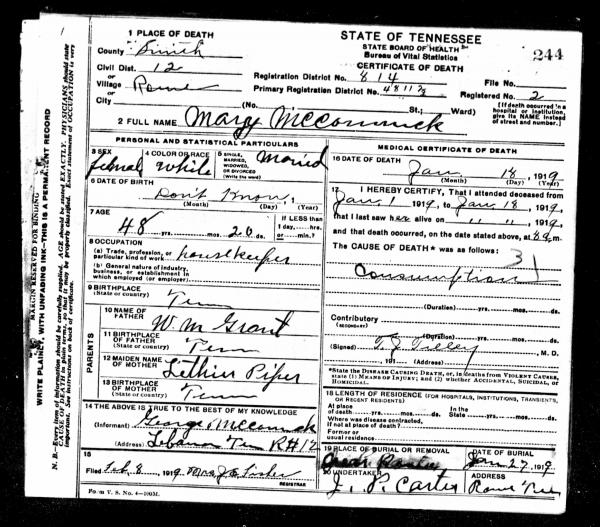 STATE OF TENNESSEE
STATE BOARD OF HEALTH
Bureau of Vital Statistics
CERTIFICATE OF DEATH
244
1 PLACE OF DEATH
County Smith
Civil Dist. 12
or
Village Rome
or
City
Registration District No. 814
File No.
Primary Registration District No.
Registered No. 2
(No. St.; Ward)
[If death occurred in a hospital or institution, give its NAME instead of street and number.]
2 FULL NAME Mary McCormick
PERSONAL AND STATISTICAL PARTICULARS
3 SEX
female
4 COLOR OR RACE
White
5 SINGLE, MARRIED, WIDOWED, OR DIVORCED
(Write the word)
Married
6 DATE OF BIRTH
Don't Know
(Month) (Day) (Year)
7 AGE
48 yrs. mos. 26 ds.
If LESS than
1 day, ---hrs.
or ---min.?
8 OCCUPATION
(a) Trade, profession, or particular kind of work
housekeeper
(b) General nature of industry, business, or establishment in which employed (or employer)
9 BIRTHPLACE
(State or country)
Tenn
PARENTS
10 NAME OF FATHER
W m Grant
11 BIRTHPLACE OF FATHER
(State or country)
Tenn
12 MAIDEN NAME OF MOTHER
Piper
13 BIRTHPLACE OF MOTHER
(State or country)
Tenn
14 THE ABOVE IS TRUE TO THE BEST OF MY KNOWLEDGE
(Informant) George McCormick
(Address) Lebanon Ten R#12
15
Filed Feb. 8, 1919 Mrs J Fisher
REGISTRAR
Form V. S. No. 4-100M.
MEDICAL CERTIFICATE OF DEATH
16 DATE OF DEATH
Jan 18, 1919
(Month) (Day) (Year)
17 I HEREBY CERTIFY, That I attended deceased from
Jan 1 1919, to Jan 18, 1919,
that I last saw her alive on " " , 1919,
and that death occurred, on the date stated above, at 8 a m.
The CAUSE OF DEATH* was as follows:
31
Consumption
(Duration) yrs. mos. ds.
Contributory
(SECONDARY)
(Duration) yrs. mos. ds.
(Signed) T. J. Tilley, M. D.
, 191 (Address)
*State the DISEASE CAUSING DEATH, or, in deaths from VIOLENT CAUSES, state (1) MEANS OF INJURY; and (2) whether ACCIDENTAL, SUICIDAL, or HOMICIDAL.
18 LENGTH OF RESIDENCE (FOR HOSPITALS, INSTITUTIONS, TRANSIENTS, OR RECENT RESIDENTS)
At place of death yrs. mos. ds. In the State yrs. mos. ds.
Where was disease contracted, if not at place of death?
Former or usual residence
19 PLACE OF BURIAL OR REMOVAL
DATE OF BURIAL
Jan 27, 1919
20 UNDERTAKER
J. P. Carter
ADDRESS
Rome Tenn
MARGIN RESERVED FOR BINDING
WRITE PLAINLY, WITH UNFADING INK—THIS IS A PERMANENT RECORD
N. B.—Every item of information should be carefully supplied. AGE should be stated EXACTLY. PHYSICIANS should state CAUSE OF DEATH in plain terms, so that it may be properly classified. Exact statement of OCCUPATION is very important. See instructions on back of certificate.